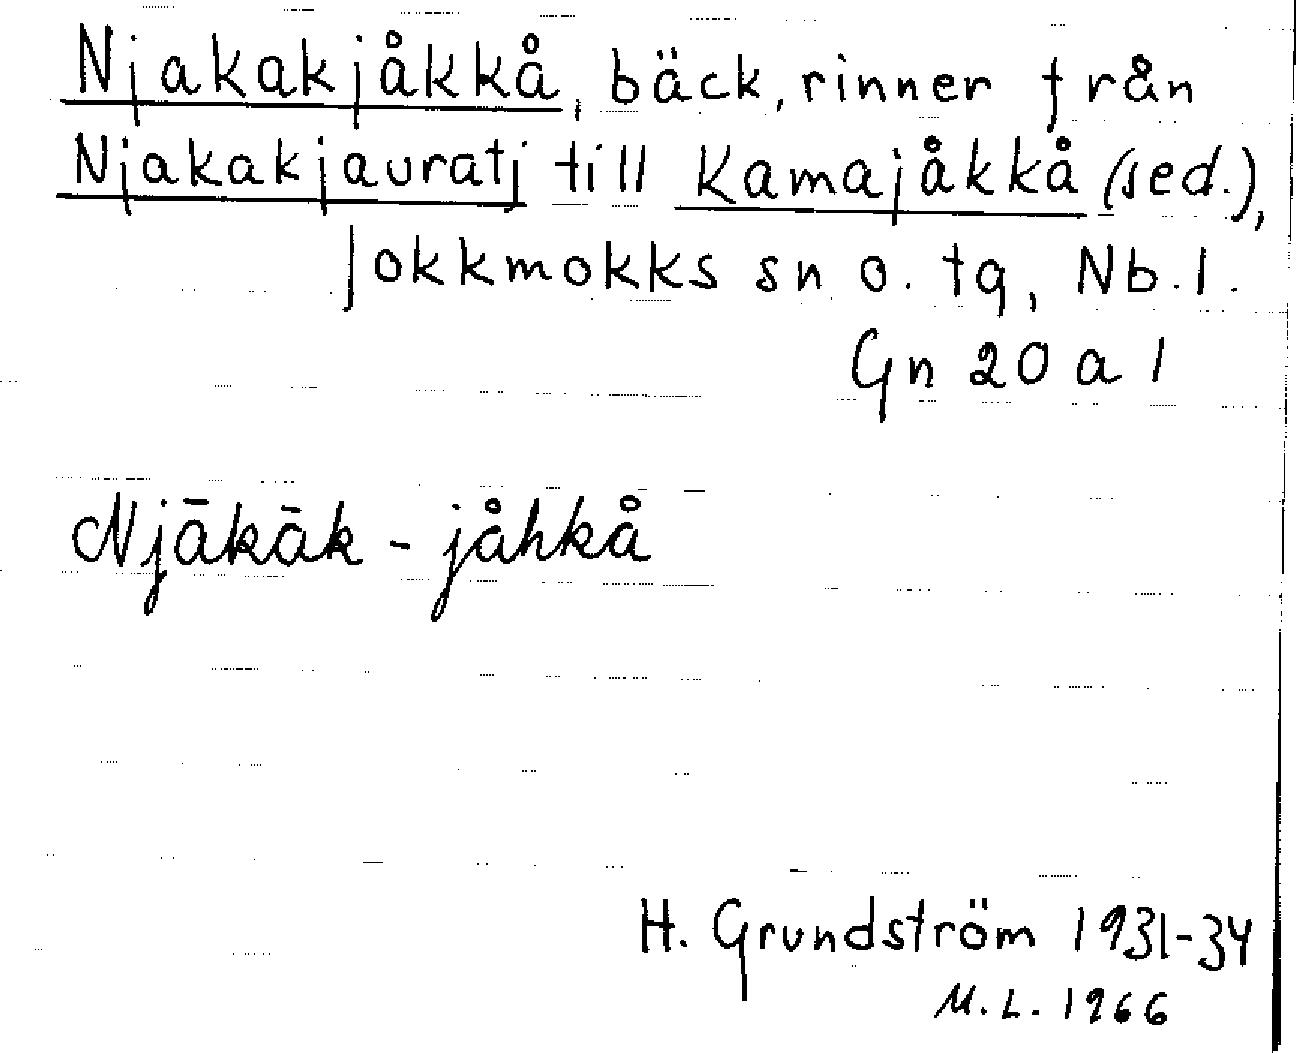 Njakakjåkkå, bäck, rinner från
Njakakjauratj till Kamajåkkå (sed.),
Jokkmokks sn o. tg, Nb. l.
Gn 20 a 1
Njākāk - jåhkå
H. Grundström 1931-34
M.L. 1966